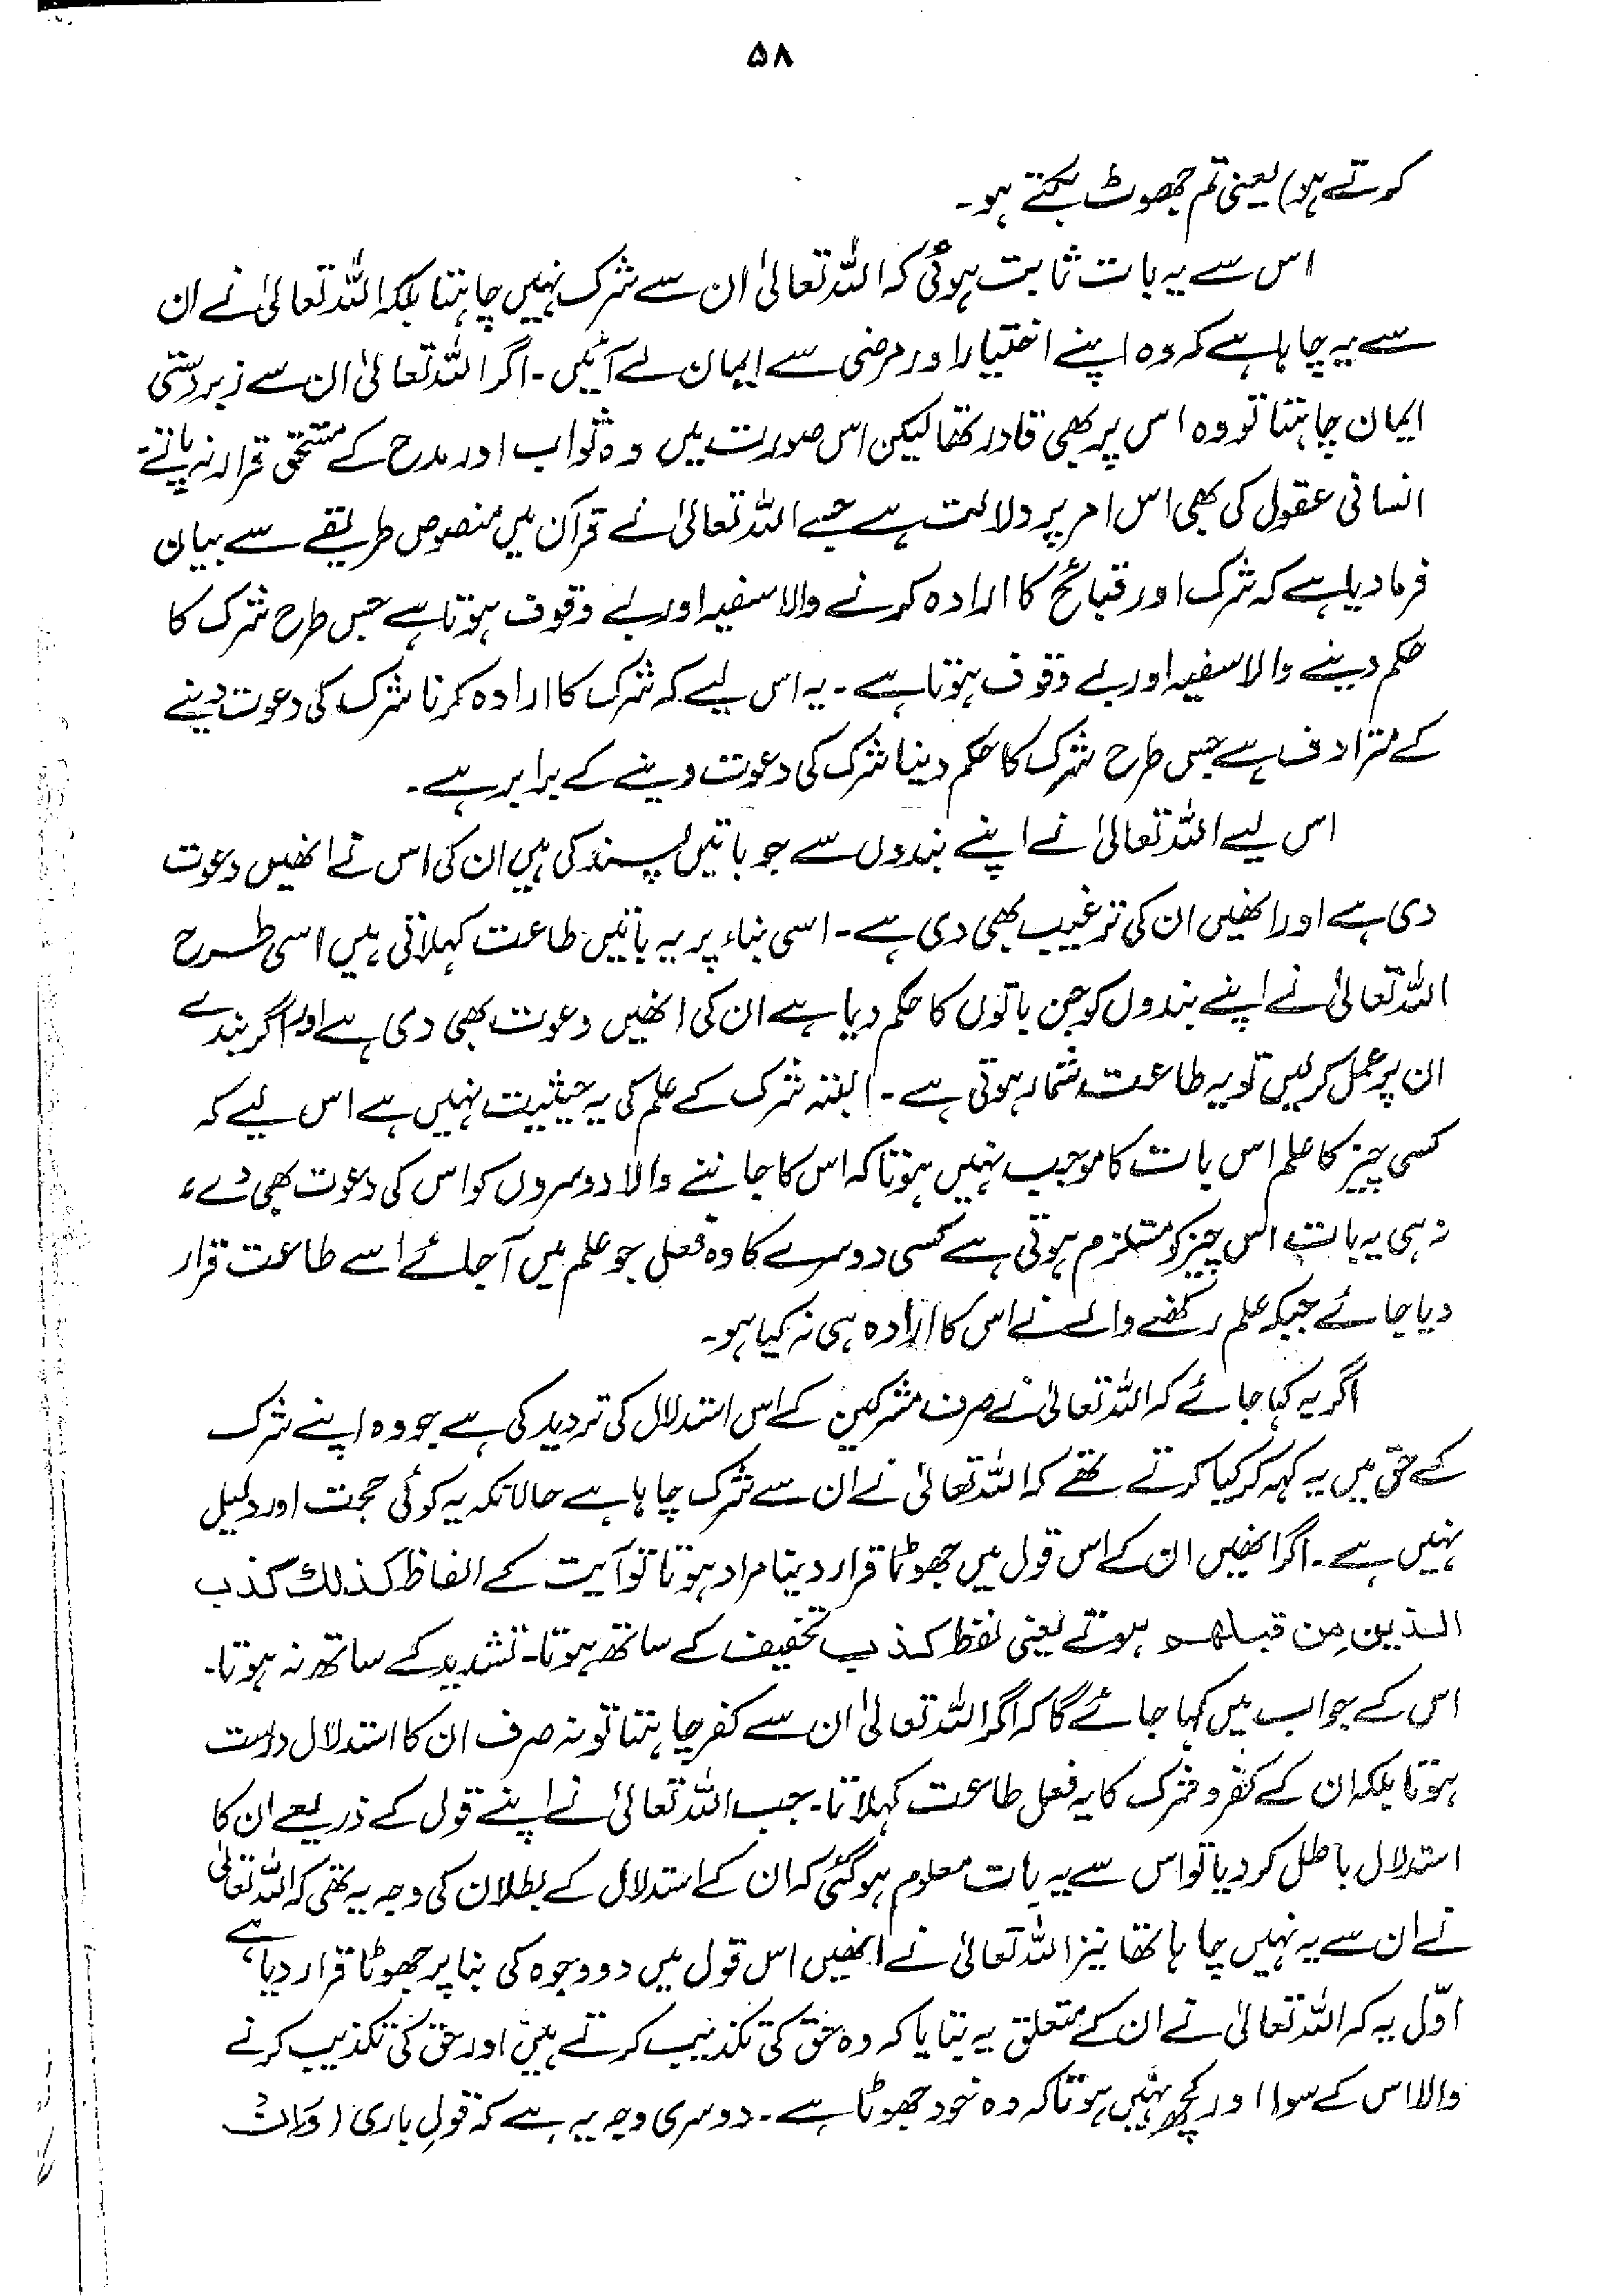 ۵۸
کرتے ہو) یعنی تم جھوٹ بکتے ہو۔
اس سے یہ بات ثابت ہوئی کہ اللہ تعالیٰ ان سے شرک نہیں چاہتا بلکہ اللہ تعالیٰ نے ان
سے یہ چاہا ہے کہ وہ اپنے اختیار اور مرضی سے ایمان لے آئیں۔ اگر اللہ تعالیٰ ان سے زبردستی
ایمان چاہتا تو وہ اس پر بھی قادر تھا لیکن اس صورت میں وہ ثواب اور مدح کے مستحق قرار نہ پاتے
انسانی عقول کی بھی اس امر پر دلالت ہے جسے اللہ تعالیٰ نے قرآن میں منصوص طریقے سے بیان
فرما دیا ہے کہ شرک اور قبائح کا ارادہ کرنے والا سفیہ اور بے وقوف ہوتا ہے جس طرح شرک کا
حکم دینے والا سفیہ اور بے وقوف ہوتا ہے۔ یہ اس لیے کہ شرک کا ارادہ کرنا شرک کی دعوت دینے
کے مترادف ہے جس طرح شرک کا حکم دینا شرک کی دعوت دینے کے برابر ہے۔
اس لیے اللہ تعالیٰ نے اپنے بندوں سے جو باتیں پسند کی ہیں ان کی اس نے انھیں دعوت
دی ہے اور انھیں ان کی ترغیب بھی دی ہے۔ اسی بناء پر یہ باتیں طاعت کہلاتی ہیں اسی طرح
اللہ تعالیٰ نے اپنے بندوں کو جن باتوں کا حکم دیا ہے ان کی انھیں دعوت بھی دی ہے اور اگر بندے
ان پر عمل کر لیں تو یہ طاعت شمار ہوتی ہے۔ البتہ شرک کے علم کی یہ حیثیت نہیں ہے اس لیے کہ
کسی چیز کا علم اس بات کا موجب نہیں ہوتا کہ اس کا جاننے والا دوسروں کو اس کی دعوت بھی دے،
نہ ہی یہ بات اس چیز کو مستلزم ہوتی ہے کسی دوسرے کا وہ فعل جو علم میں آجائے اسے طاعت قرار
دیا جائے جبکہ علم رکھنے والے نے اس کا ارادہ ہی نہ کیا ہو۔
اگر یہ کہا جائے کہ اللہ تعالیٰ نے صرف مشرکین کے اس استدلال کی تردید کی ہے جو وہ اپنے شرک
کے حق میں یہ کہہ کر کیا کرتے تھے کہ اللہ تعالیٰ نے ان سے شرک چاہا ہے حالانکہ یہ کوئی حجت اور دلیل
نہیں ہے۔ اگر انھیں ان کے اس قول میں جھوٹا قرار دینا مراد ہوتا تو آیت کے الفاظ کذلك کذب
الذین من قبلھم ہوتے یعنی لفظ کذب تخفیف کے ساتھ ہوتا۔ تشدید کے ساتھ نہ ہوتا۔
اس کے جواب میں کہا جائے گا کہ اگر اللہ تعالیٰ ان سے کفر چاہتا تو نہ صرف ان کا استدلال درست
ہوتا بلکہ ان کے کفر و شرک کا یہ فعل طاعت کہلاتا۔ جب اللہ تعالیٰ نے اپنے قول کے ذریعے ان کا
استدلال باطل کر دیا تو اس سے یہ بات معلوم ہو گئی کہ ان کے استدلال کے بطلان کی وجہ یہ تھی کہ اللہ تعالیٰ
نے ان سے یہ نہیں چاہا تھا نیز اللہ تعالیٰ نے انھیں اس قول میں دو وجوہ کی بنا پر جھوٹا قرار دیا ہے،
اوّل یہ کہ اللہ تعالیٰ نے ان کے متعلق یہ بتایا کہ وہ حق کی تکذیب کرتے ہیں اور حق کی تکذیب کرنے
والا اس کے سوا اور کچھ نہیں ہوتا کہ وہ خود جھوٹا ہے۔ دوسری وجہ یہ ہے کہ قولِ باری (وَاِنْ